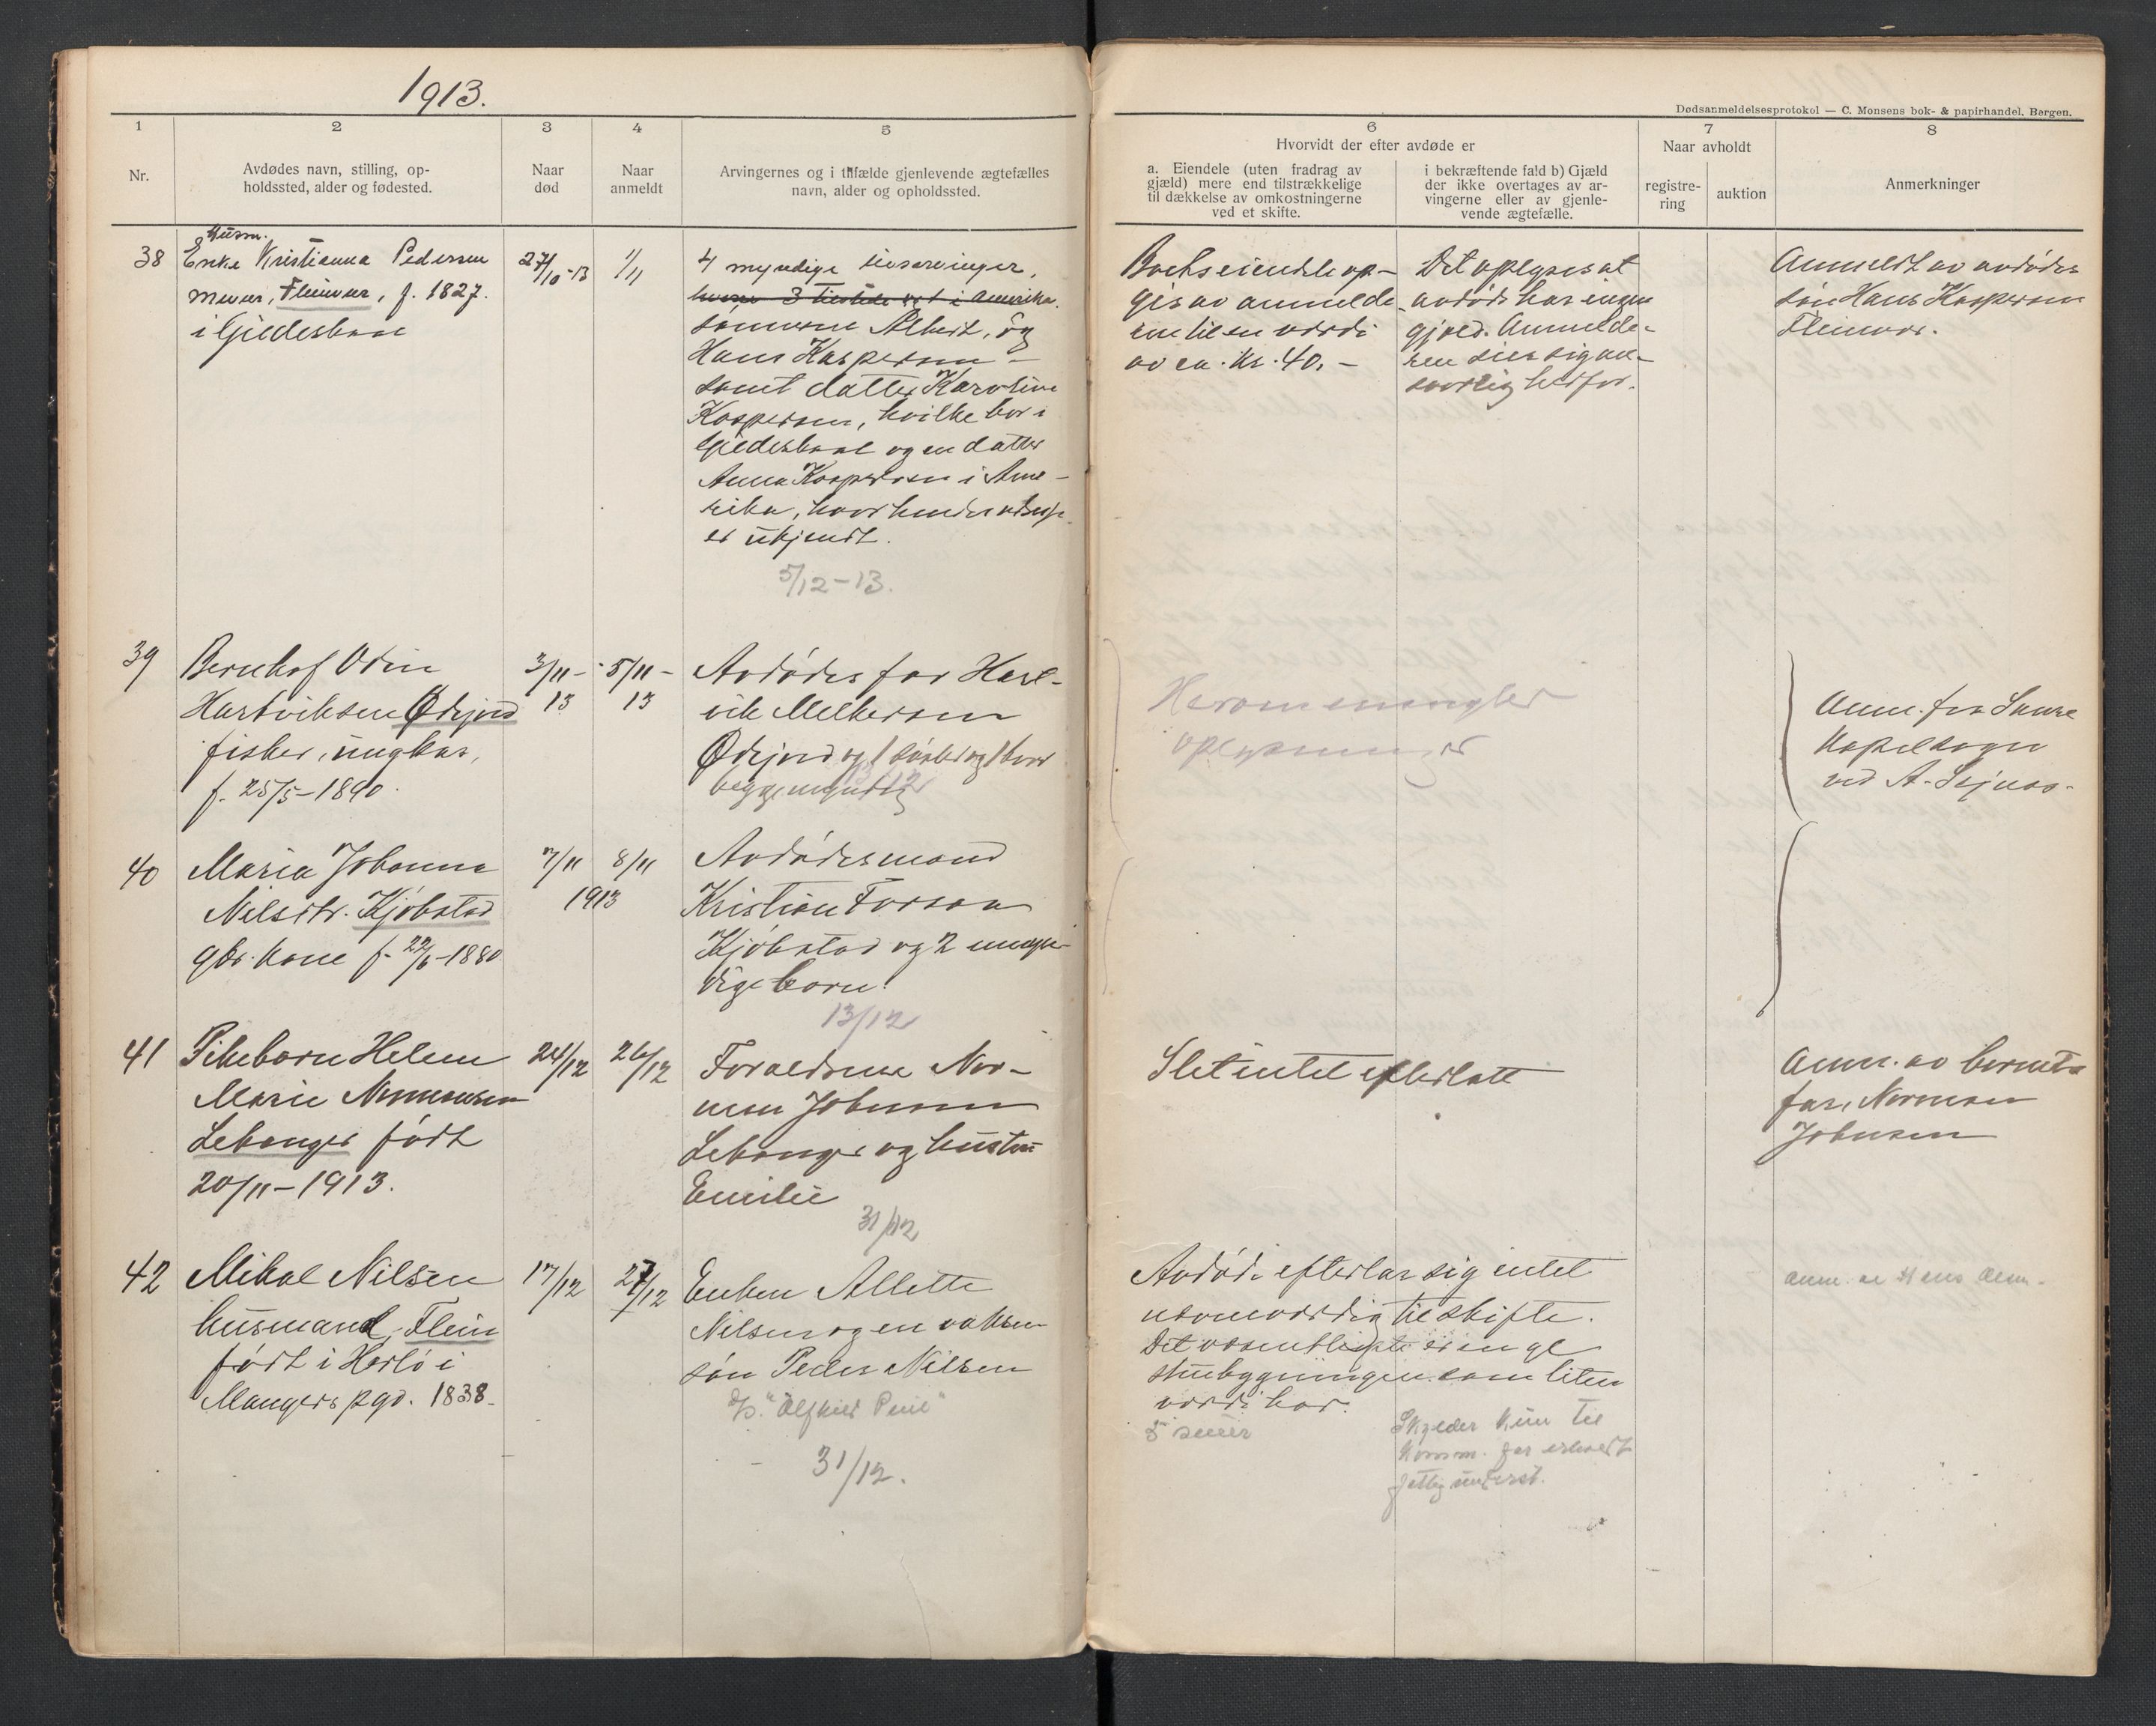 1913.
Dødsanmeldelsesprotokol — C. Monsens bok- & papirhandel, Bergen.
1
2
3
4
5
6
7
8
Nr.
Avdødes navn, stilling, op-
holdssted, alder og fødested.
Naar
død
Naar
anmeldt
Arvingernes og i tilfælde gjenlevende ægtefælles
navn, alder og opholdssted.
Hvorvidt der efter avdøde er
a. Eiendele (uten fradrag av
gjæld) mere end tilstrækkelige
til dækkelse av omkostningerne
ved et skifte.
i bekræftende fald b) Gjæld
der ikke overtages av ar-
vingerne eller av gjenle-
vende ægtefælle.
Naar avholdt
registre-
ring
auktion
Anmerkninger
38
Husm.
Enke Kristianna Pedersen
Fleinvær, f. 1827.
i Gildeskaal
27/10-13
1/11
4 myndige livsarvinger,
hvorav 3 tilstede og 1 i Amerika.
sønnerne Albert, og
Hans Kaspersen —
samt datter Karoline
Kaspersen, hvilke bor i
Gildeskaal og en datter
Anna Kaspersen i Ame-
rika, hvor hendes adresse
er ukjendt.
5/12-13.
Boets eiendele op-
gis av anmelde-
ren til en værdi
av ca. kr. 40.-
Det oplyses at
avdøde har ingen
gjæld. Anmelde-
ren sier sig an-
svarlig herfor.
Anmeldt av avdødes
søn Hans Kaspersen
Fleinvær.
39
Bernhof Odin
Hartviksen Ødejord
fisker, ungkar,
f. 25/5-1890.
3/11-
13
5/11-
13
Avdødes far Hart-
vik Melkersen
Ødejord og 1 søster og 1 bror
begge myndig
13/12
Herom mangler
oplysninger
Anm. fra Saura
Kapelsogn
ved A.
40
Maria Johanna
Nilsdtr. Kjøbstad
gbr. kone f. 22/6-1880
7/11
8/11
1913
Avdødes mand
Kristian
Kjøbstad og 2 umyn-
dige barn.
13/12
41
Pikebarn Helene
Marie Normansen
Lekanger født
20/11-1913.
24/12
26/12
Forældrene Nor-
man Johnsen
Lekanger og hustru
Emilie
31/12
Slet intet efterlatt
Anm. av barnets
far, Norman
Johnsen
42
Mikal Nilsen
husmand, Flein
født i Herlø i
Mangers pgd. 1838-
17/12
27/12
Enken Allette
Nilsen og en voksen
søn Peder Nilsen
31/12.
Avdøde efterlar sig intet
av værdi til skifte.
Det væsentligste er en gl
stuebygning som liten
værdi har.
5 sauer
Skylder kun til
komm. for erholdt
fattigunderst.
anm. av Hans